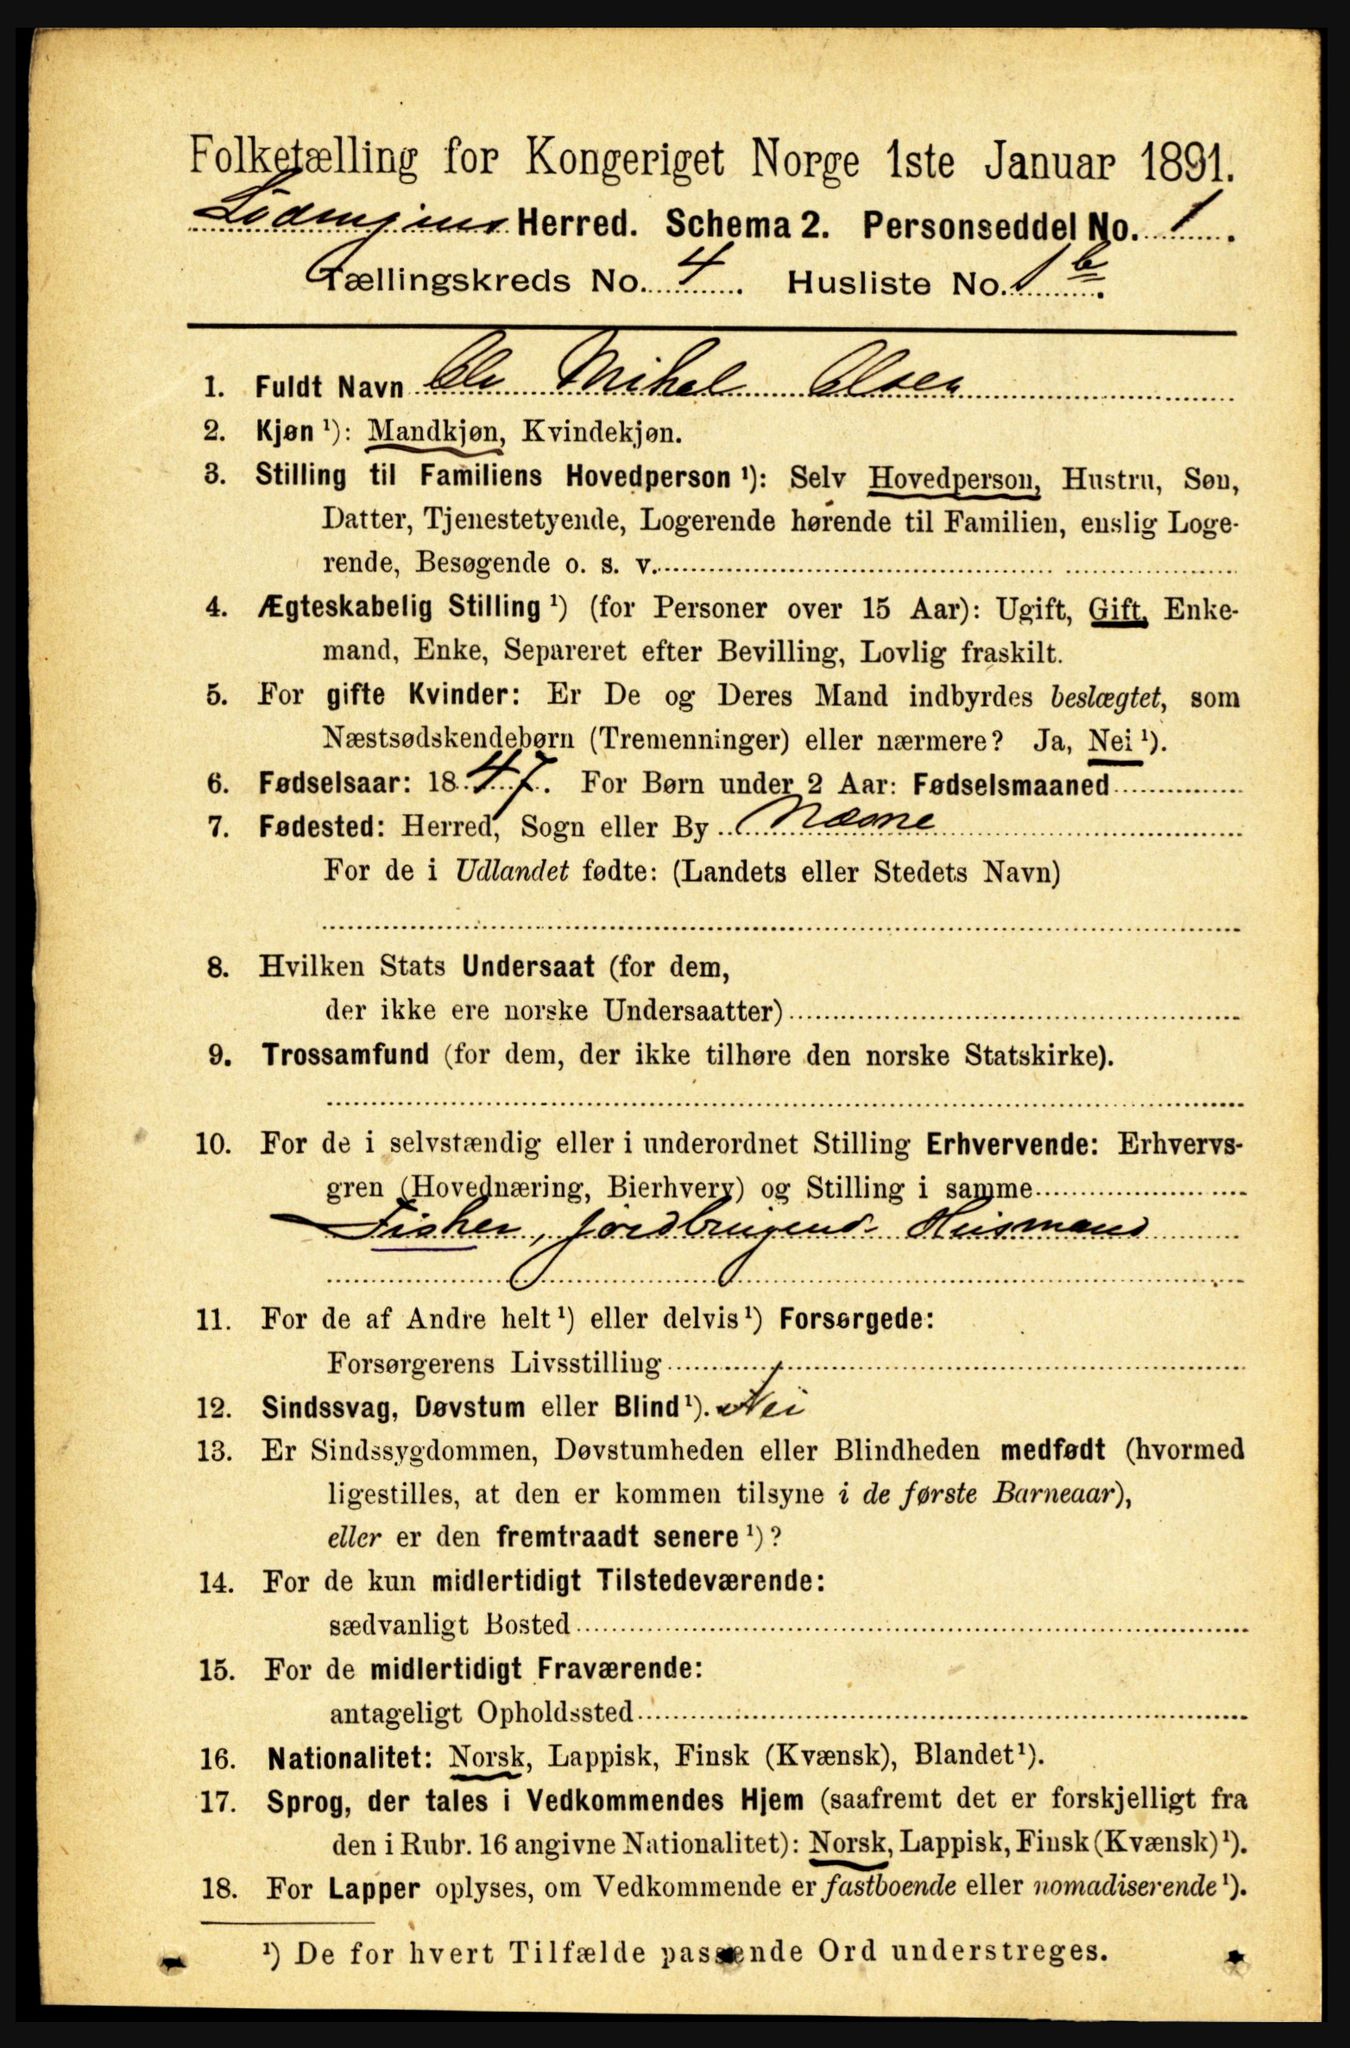 Folketælling for Kongeriget Norge 1ste Januar 1891.
Lødingens Herred. Schema 2. Personseddel No. 1.
Tællingskreds No. 4. Husliste No. 1 b.
1. Fuldt Navn Ole Mikal Olsen
2. Kjøn ¹): Mandkjøn, Kvindekjøn.
3. Stilling til Familiens Hovedperson ¹): Selv Hovedperson, Hustru, Søn,
Datter, Tjenestetyende, Logerende hørende til Familien, enslig Loge-
rende, Besøgende o. s. v.
4. Ægteskabelig Stilling ¹) (for Personer over 15 Aar): Ugift, Gift, Enke-
mand, Enke, Separeret efter Bevilling, Lovlig fraskilt.
5. For gifte Kvinder: Er De og Deres Mand indbyrdes beslægtet, som
Næstsødskendebørn (Tremenninger) eller nærmere? Ja, Nei ¹).
6. Fødselsaar: 1847. For Børn under 2 Aar: Fødselsmaaned
7. Fødested: Herred, Sogn eller By Næsne
For de i Udlandet fødte: (Landets eller Stedets Navn)
8. Hvilken Stats Undersaat (for dem,
der ikke ere norske Undersaatter)
9. Trossamfund (for dem, der ikke tilhøre den norske Statskirke).
10. For de i selvstændig eller i underordnet Stilling Erhvervende: Erhvervs-
gren (Hovednæring, Bierhverv) og Stilling i samme
Fisker, jordbrugend Husmand
11. For de af Andre helt ¹) eller delvis ¹) Forsørgede:
Forsørgerens Livsstilling
12. Sindssvag, Døvstum eller Blind ¹). Nei
13. Er Sindssygdommen, Døvstumheden eller Blindheden medfødt (hvormed
ligestilles, at den er kommen tilsyne i de første Barneaar),
eller er den fremtraadt senere ¹)?
14. For de kun midlertidigt Tilstedeværende:
sædvanligt Bosted
15. For de midlertidigt Fraværende:
antageligt Opholdssted
16. Nationalitet: Norsk, Lappisk, Finsk (Kvænsk), Blandet ¹).
17. Sprog, der tales i Vedkommendes Hjem (saafremt det er forskjelligt fra
den i Rubr. 16 angivne Nationalitet): Norsk, Lappisk, Finsk (Kvænsk) ¹).
18. For Lapper oplyses, om Vedkommende er fastboende eller nomadiserende ¹).
¹) De for hvert Tilfælde passende Ord understreges.